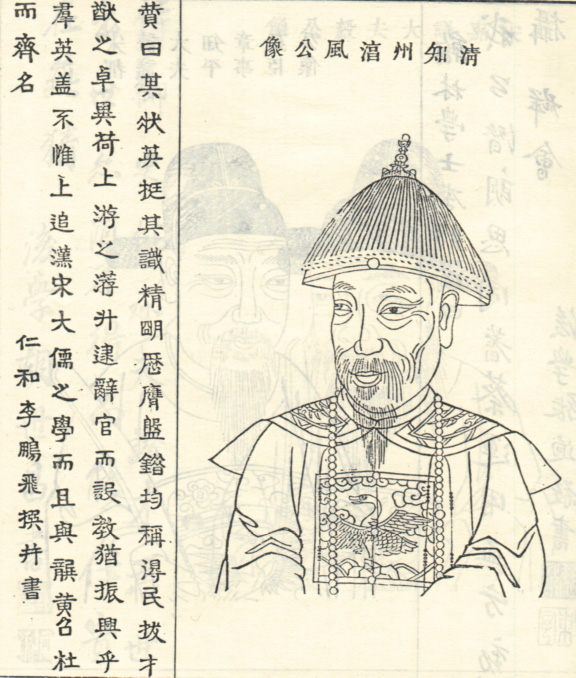 清知州湻風公像
贊曰其狀英挺其識精明歷膺盤錯均稱淂民拔才
猷之卓異荷上游之荐升逮辭官而設教猶振興乎
羣英盖不惟上追漢宋大儒之學而且與龔黄召杜
而齊名
仁和李鵬飛撰并書